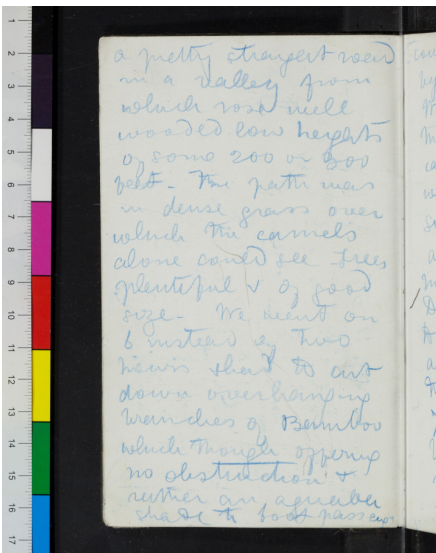 a pretty straight road
in a valley from
which rose well
wooded low heights
of some 200 or 300
feet - The path was
in dense grass over
which the camels
alone could see trees
plentiful & of good
size - We went on
6 instead of two
hours & had to cut
down overhanging
branches of Bamboo
which though offering
no obstruction &
rather an agreeable
shade to foot passengers
1
2
3
4
5
6
7
8
9
10
11
12
13
14
15
16
17